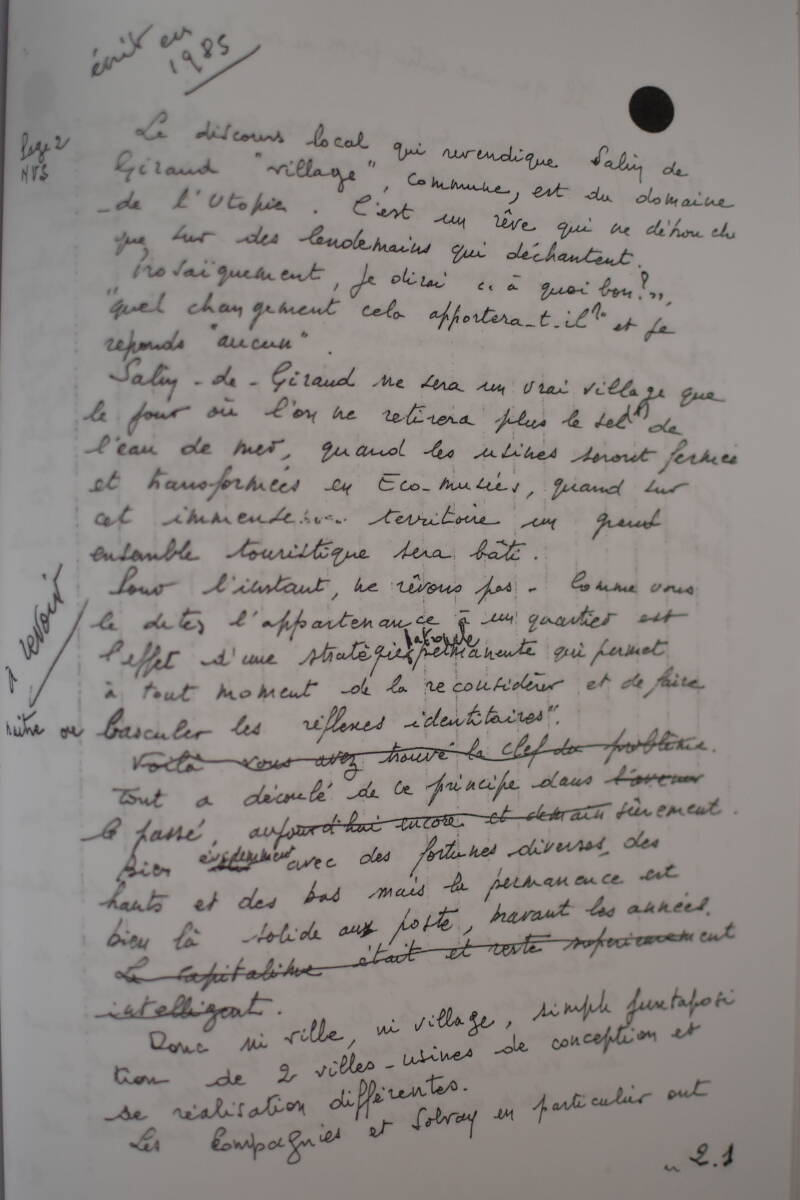 écrit en
1985
Page 2
Le discours local qui revendique Salin de
Giraud "village", commune, est du domaine
de l'Utopie. C'est un rêve qui ne débouche
que sur des lendemains qui déchantent.
Prosaïquement, je dirai "à quoi bon?",
"quel changement cela apportera-t-il?" et je
réponds "aucun".
Salin-de-Giraud ne sera un vrai village que
le jour où l'on ne retirera plus le sel de
l'eau de mer, quand les usines seront fermées
et transformées en Eco-musées, quand sur
cet immense territoire un grand
ensemble touristique sera bâti.
Pour l'instant, ne rêvons pas. Comme vous
le dites l'appartenance à un quartier est
l'effet d'une stratégie patronale permanente qui permet
à tout moment de la reconsidérer et de faire
à revoir
naître ou basculer les réflexes identitaires".
Voilà vous avez trouvé la clef du problème.
Tout a découlé de ce principe dans l'avenir
le passé, aujourd'hui encore et demain sûrement.
Bien évidemment avec des fortunes diverses, des
hauts et des bas mais la permanence est
bien là solide au poste, bravant les années.
Le capitalisme était et reste supérieurement
intelligent.
Donc ni ville, ni village, simple juxtaposi
tion de 2 villes-usines de conception et
de réalisation différentes.
Les Compagnies et Solvay en particulier ont
2.1